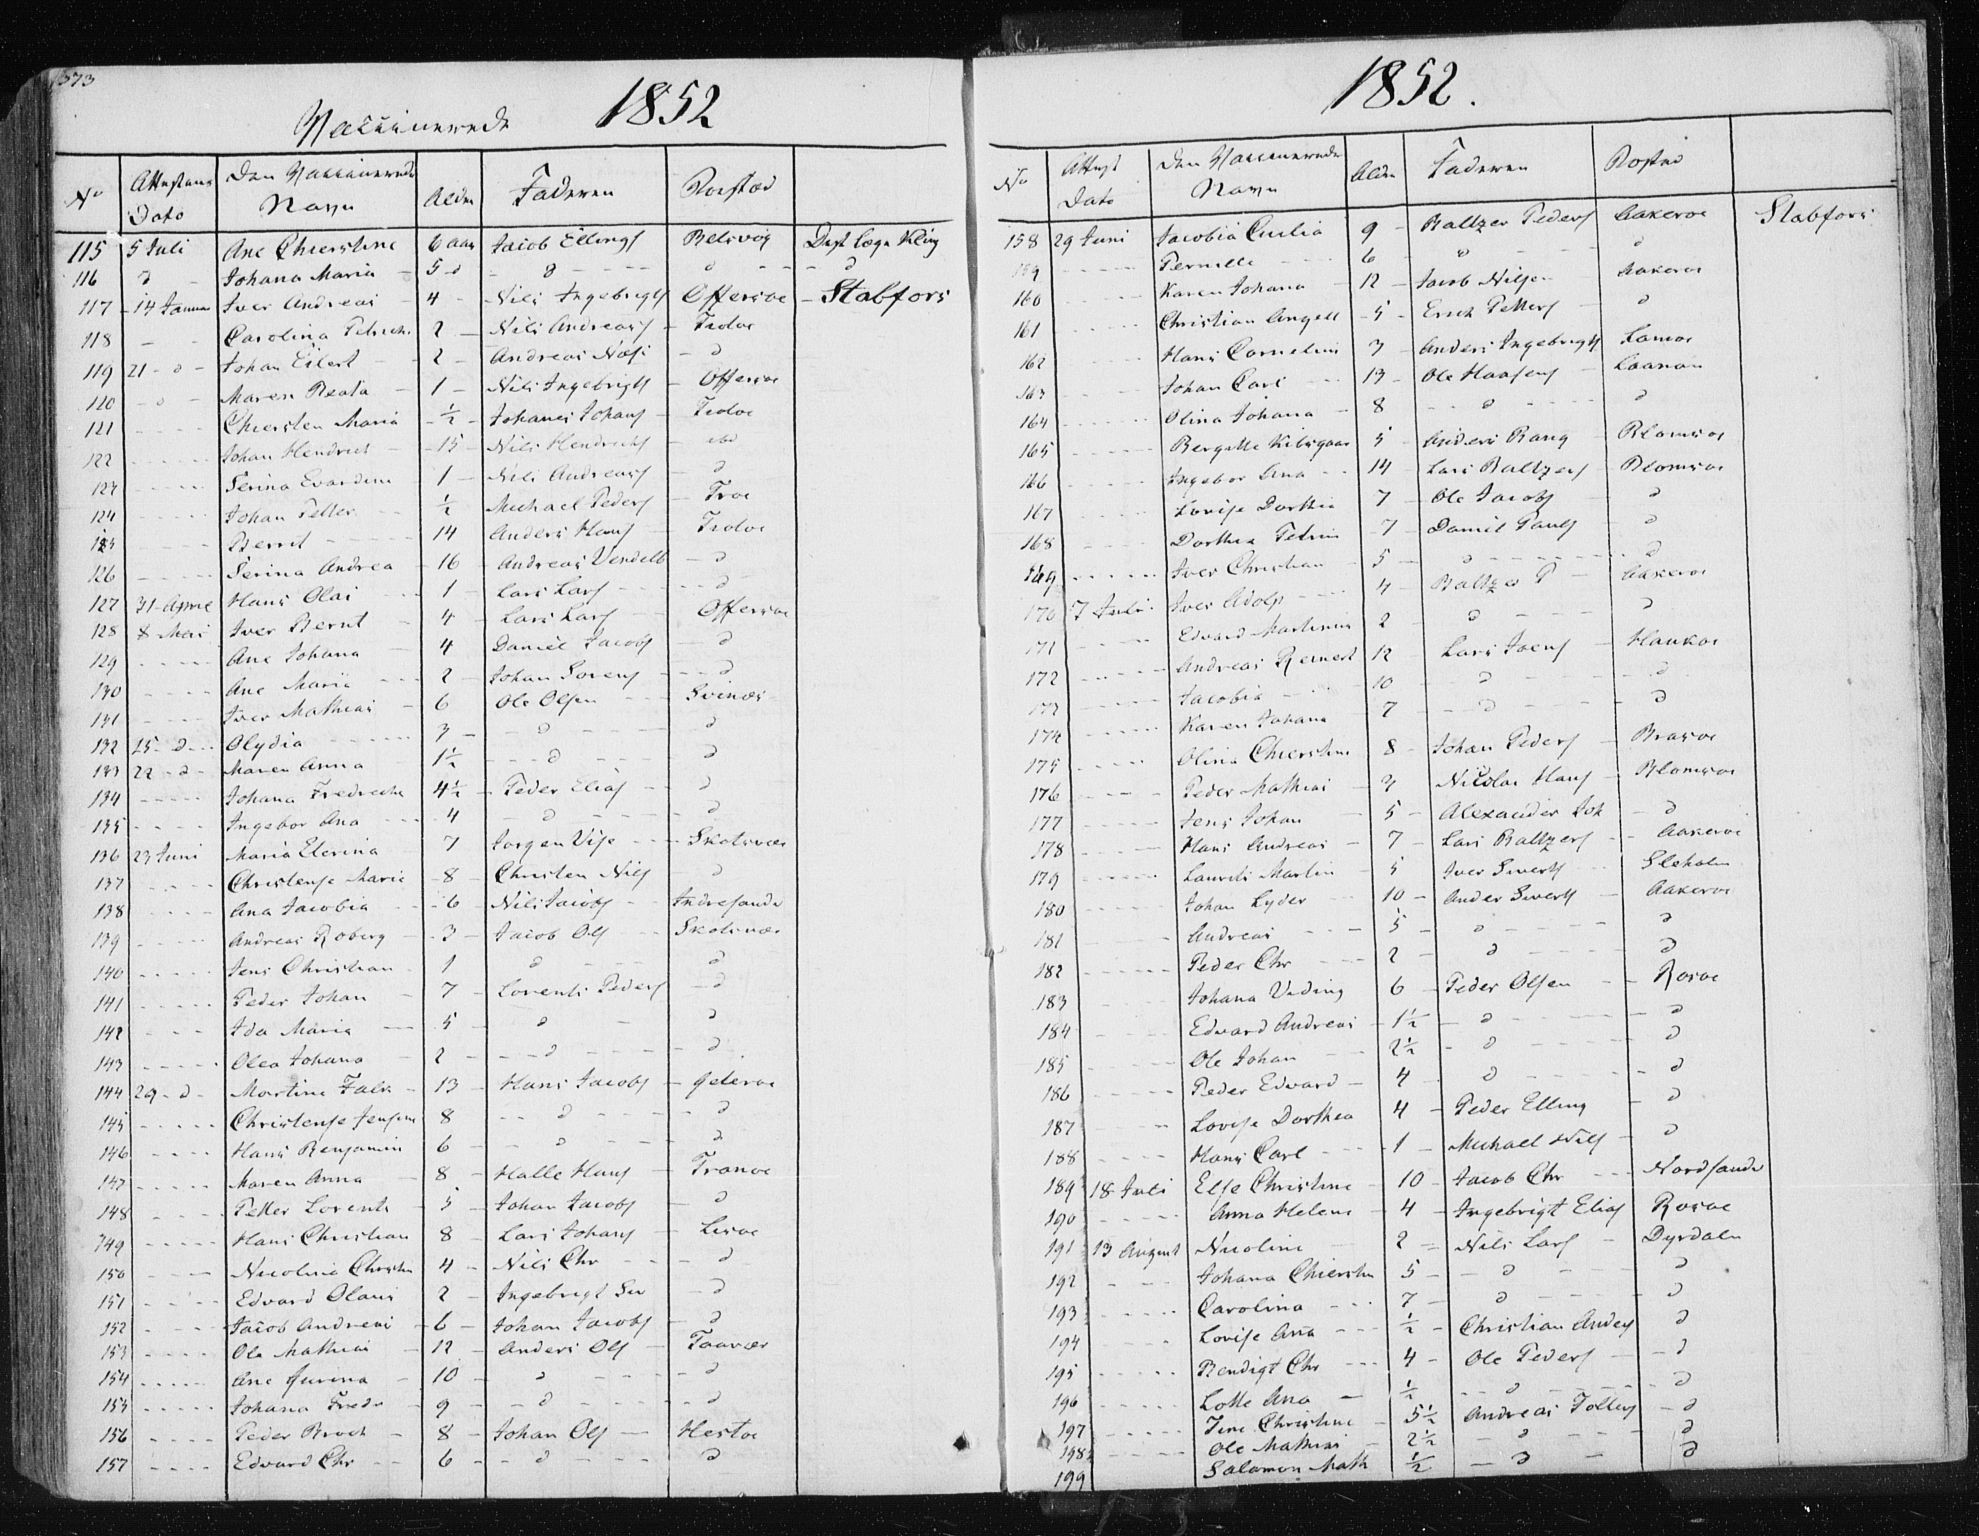 373
Vaccinerede 1852
No Attestens Dato Den Vaccineredes Navn Alder Faderen Bosted
115 5 Juli Ane Chierstine 6 aar Jacob Ellings Belsvog Dist Læge Kling
116 d Johana Maria - 5 d - d - - - d - - d
117 - 14 Januar Iver Andreas - 4 - Nils Ingebrigts Offersøe - Stabfors
118 - - Carolina Petricke 2 - Nils Andreas - Tioløe
119 21 - d - Johan Eilert - 2 - Andreas Næss - d
120 - d - Maren Beata - 1 - Nils Ingebrigts - Offersøe
121 - - - - Chiersten Maria - ½ - Johanes Johans - Tioløe
122 - - - - Johan Hendrich - 15 - Nils Hendrichs - ibd
123 - - - - Serina Evardine 1 - Nils Andreas - d
124 - - - - Johan Petter - ½ - Michael Peders - Troe
125 - - - - Bernt - - - 14 Anders Hans - Tioløe
126 - - - - Serina Andrea - 16 - Andreas Vendelb - d
127 31 April Hans Olai - 1 - Lars Lars - - - d
128 8 Mai Iver Bernt - 4 - Lars Lars - Offersøe
129 - - - - Ane Johana - 4 Daniel Jacobs - d
130 - - - - Ane Maria - - - 2 - Johan Sørens - - d
131 - - - - Iver Mathias - 6 Ole Olsen - - Svinøes
132 15 - d - - Olydia - - - 3 - - d - - - d
133 22 - d - Maren Anna - 1½ - - d - - - d
134 - - - - Johana Fredricke 4½ - Peder Elias - - d
135 - - - - Ingebor Ana - - - 4 - d - - - d
136 23 Juni Maria Elerina 7 Jørgen Vise - - - Skotsvær
137 - - - - Christense Marie - 8 - Christen Nils - d
138 - - - - Ana Jacobia - - 6 - Nils Jacobs - - Indresande
139 - - - - Andreas Roberg - - 3 - Jacob Ols - - Skotsvær
140 - - - - Jens Christian 1 - d - - - d
141 - - - - Peder Johan - 7 - Lorents Peders - d
142 - - - Ida Maria - - 5 - d - - d
143 - - - - Olea Johana - 2 - - - d - - - d
144 29 - d - Martine Falk - 13 - Hans Jacobs - Gjeterøe
145 - - - - Christense Jensine 8 - - d - - - d
146 - - - - Hans Benjamin 6 - - d - - - d
147 - - - - Maren Anna - 8 - Halle Hans - Tranøe
148 - - - - Petter Lorents - 5 - Johan Jacobs - d
149 - - - - Hans Christian 8 - Lars Johans - Lisøe
150 - - - Nicolina Christin 4 - Nils Chr - - - d
151 - - - - Edvard Olaus - 2 - Ingebrigt Siv - d
152 - - - - Jacob Andreas - 6 - Johan Jacobs - d
153 - - - - Ole Mathias - 12 - Anders Ols - Taavær
154 - - - - Ane Jurina - 10 - d - - - d
155 - - - - Johana Fredr - 9 - d - - - d
156 - - - - Peder Broch - 8 - Johan Ols - - Hestøe
157 - - - - Edvard Chr - - 6 - - d - - - d
1852.
No Attest Dato Den Vaccineredes Navn Alder Faderen Bosted
158 29 Juni Jacobia Cecilia 9 - Baltzer Peders Aakerøe Stabfors
159 - - - - Pernille - - - 6 - d - - d
160 - - - - Karen Johana - 12 - Jacob Nilsen - Aakerøe
161 - - - - Christian Angell - 5 - Erich Petters - d
162 - - - - Hans Cornelius 3 - Anders Ingebrigts Lamøe
163 - - - - Johan Carl - - 13 - Ole Haasens - Laanan
164 - - - - Olina Johana - 8 - - d - - - d
165 - - - - Bergitte Kilsgaar 5 - Anders Bang - Blomsøe
166 - - - - Ingebor Ana - - 14 - Lars Baltzers - Blomsøe
167 - - - - Lovise Dorthea 7 - Ole Jacobs - d
168 - - - - Dorthea Petrine - 7 - Daniel Pauls - d
169 - - - - Iver Christian 5 - - d - - - d
170 7 Juli Iver Adolp - - - 4 - Baltzer P - Aakerøe
171 - - - Edvard Martinus 2 - d - - - d
172 - - - - Andreas Bernert 12 - Lars Joens - Haukøe
173 - - - - Jacobia - - - 10 - d - - - d
174 - - - - Karen Johana - 7 - - d - - d
175 - - - - Olina Chierstine 8 - Johan Peders - Brasøe
176 - - - - Peder Mathias - 3 Nicolai Hans - Blomsøe
177 - - - - Jens Johan - 5 - Alexander Joh - d
178 - - - - Hans Andreas - 7 - Lars Baltzers - - Aakerøe
179 - - - - Laurits Martin - 5 Iver Siverts - - Sleholm
180 - - - - Johan Lyder - - 10 - Ander Siverts - Aakerøe
181 - - - Andreas - - - 5 - d - - d
182 - - - - Peder Chr - - 2 - d - - d
183 - - - - Johana Veding 6 - Peder Olsen - - Rosøe
184 - - - Edvard Andreas - 1½ - d - - - d
185 - - - - Ole Johan - - 2½ - d - - - d
186 - - - - Peder Edvard - 4 d - - - d
187 - - - Lovise Dorthea 4 - Peder Elling - d
188 - - - - Hans Carl - - - 1 - Michael Nils - d
189 18 Juli Else Christine - 10 - Jacob Chr - - - Nordsande
190 - - - - Anna Helene - 4 - Ingebrigt Elias Rosøe
191 13 August Nicoline - 2 - Nils Lars - Dyrdalen
192 - - - Johana Chierstin 5 - - d - - d
193 - - - - Carolina - - - 7 - d - - - d
194 - Lovise Ana - - - ½ - Christian Anders d
195 - - - - Bendigt Chr - - - 4 - Ole Peders - - d
196 - - - - Lotte Ana - ½ - - d - - - d
197 - - - - Jine Christine - 5½ - Andreas Tollefs - d
198 - - - Ole Mathias - 2½ - d - - d
199 Salamon Math ½ - d - d